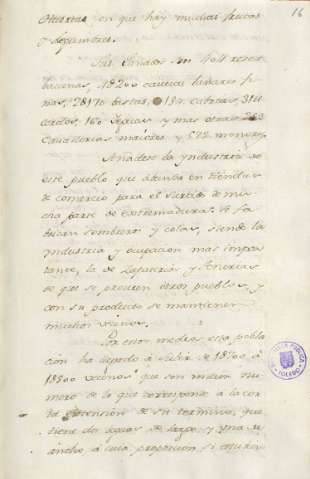 16
en que hay muchas frutas
y legumbres.
Sus Ganados son 404 reses
bacunas, 48200 cavezas lanares fi-
nas, 28170 bastas, 130 cabrias, 311
cerdos, 160 Yeguas y mas otras 263
Cavallerias maiores y 522 menores
Añadese la yndustria de
este pueblo que abunda en tiendas
de comercio para el surtido de mu-
cha parte de Extremadura. Se fa-
brican sombreros y colas, siendo la
yndustria y ocupacion mas impor-
tante, la de Zapaterias y Tenerias
de que se proveen otros pueblos, y
con su producto se mantienen
muchos vecinos.
Por estos medios esta pobla-
cion ha llegado a subir de 18700 a
18500 vecinos que son maior nu-
mero de lo que corresponde à la cor-
ta extension de su termino, que
tiene dos leguas de largo y una de
ancho, à cuia proporcion si
PUBLICA
TOLEDO